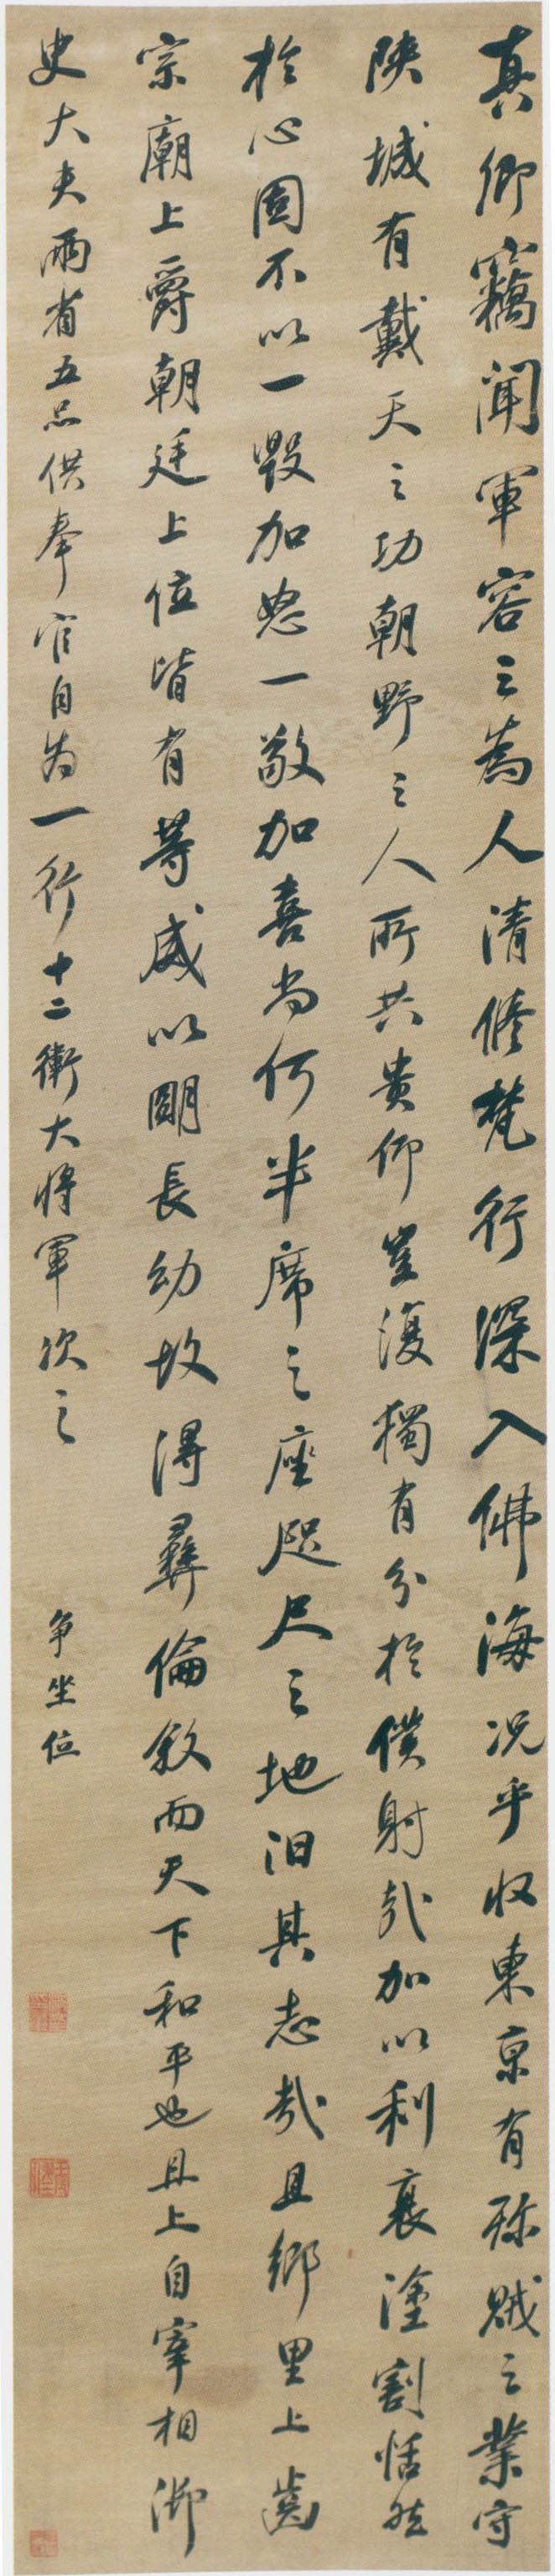 真卿竊聞軍容之為人清修梵行深入佛海况乎收東京有殄賊之業守
陝城有戴天之功朝野之人所共貴仰豈復獨有分於僕射哉加以利衰塗割恬然
於心固不以一毀加怒一敬加喜尚何半席之座咫尺之地汩其志哉且鄉里上齒
宗廟上爵朝廷上位皆有等威以明長幼故得彝倫敘而天下和平也且上自宰相御
史大夫兩省五品供奉官自為一行十二衛大將軍次之
争坐位